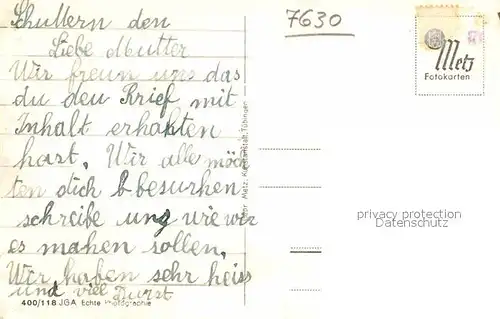 Schuttern den
Liebe Mutter
Wir freun uns das
du den Brief mit
Inhalt erhakten
hast. Wir alle möch
ten dich besurhen
schreibe uns wie wir
es mahen sollen.
Wir haben sehr heiss
und viel Durst
400/118 JGA Echte Photographie
Metz, Kunstanstalt, Tübingen
7630
Metz
Fotokarten
privacy protection
Datenschutz